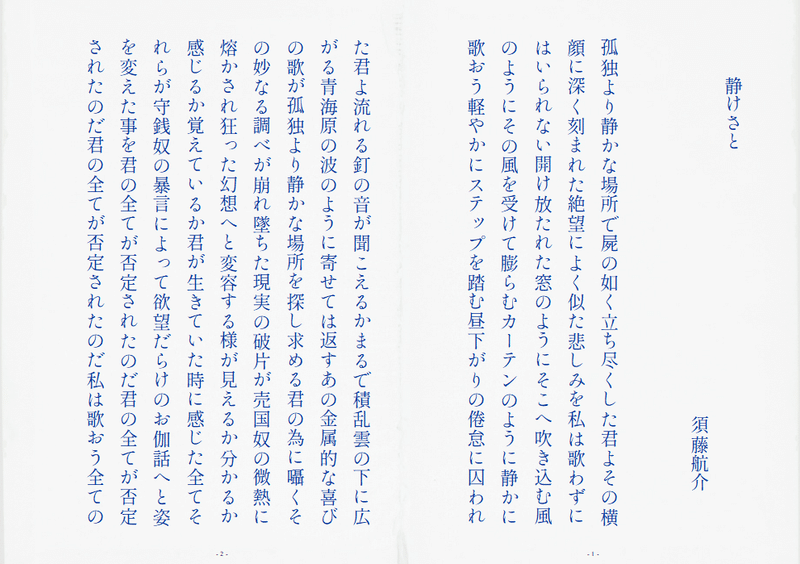 静けさと
須藤航介
孤独より静かな場所で屍の如く立ち尽くした君よその横
顔に深く刻まれた絶望によく似た悲しみを私は歌わずに
はいられない開け放たれた窓のようにそこへ吹き込む風
のようにその風を受けて膨らむカーテンのように静かに
歌おう軽やかにステップを踏む昼下がりの倦怠に囚われ
- 1 -
た君よ流れる釘の音が聞こえるかまるで積乱雲の下に広
がる青海原の波のように寄せては返すあの金属的な喜び
の歌が孤独より静かな場所を探し求める君の為に囁くそ
の妙なる調べが崩れ墜ちた現実の破片が売国奴の微熱に
熔かされ狂った幻想へと変容する様が見えるか分かるか
感じるか覚えているか君が生きていた時に感じた全てそ
れらが守銭奴の暴言によって欲望だらけのお伽話へと姿
を変えた事を君の全てが否定されたのだ君の全てが否定
されたのだ君の全てが否定されたのだ私は歌おう全ての
- 2 -